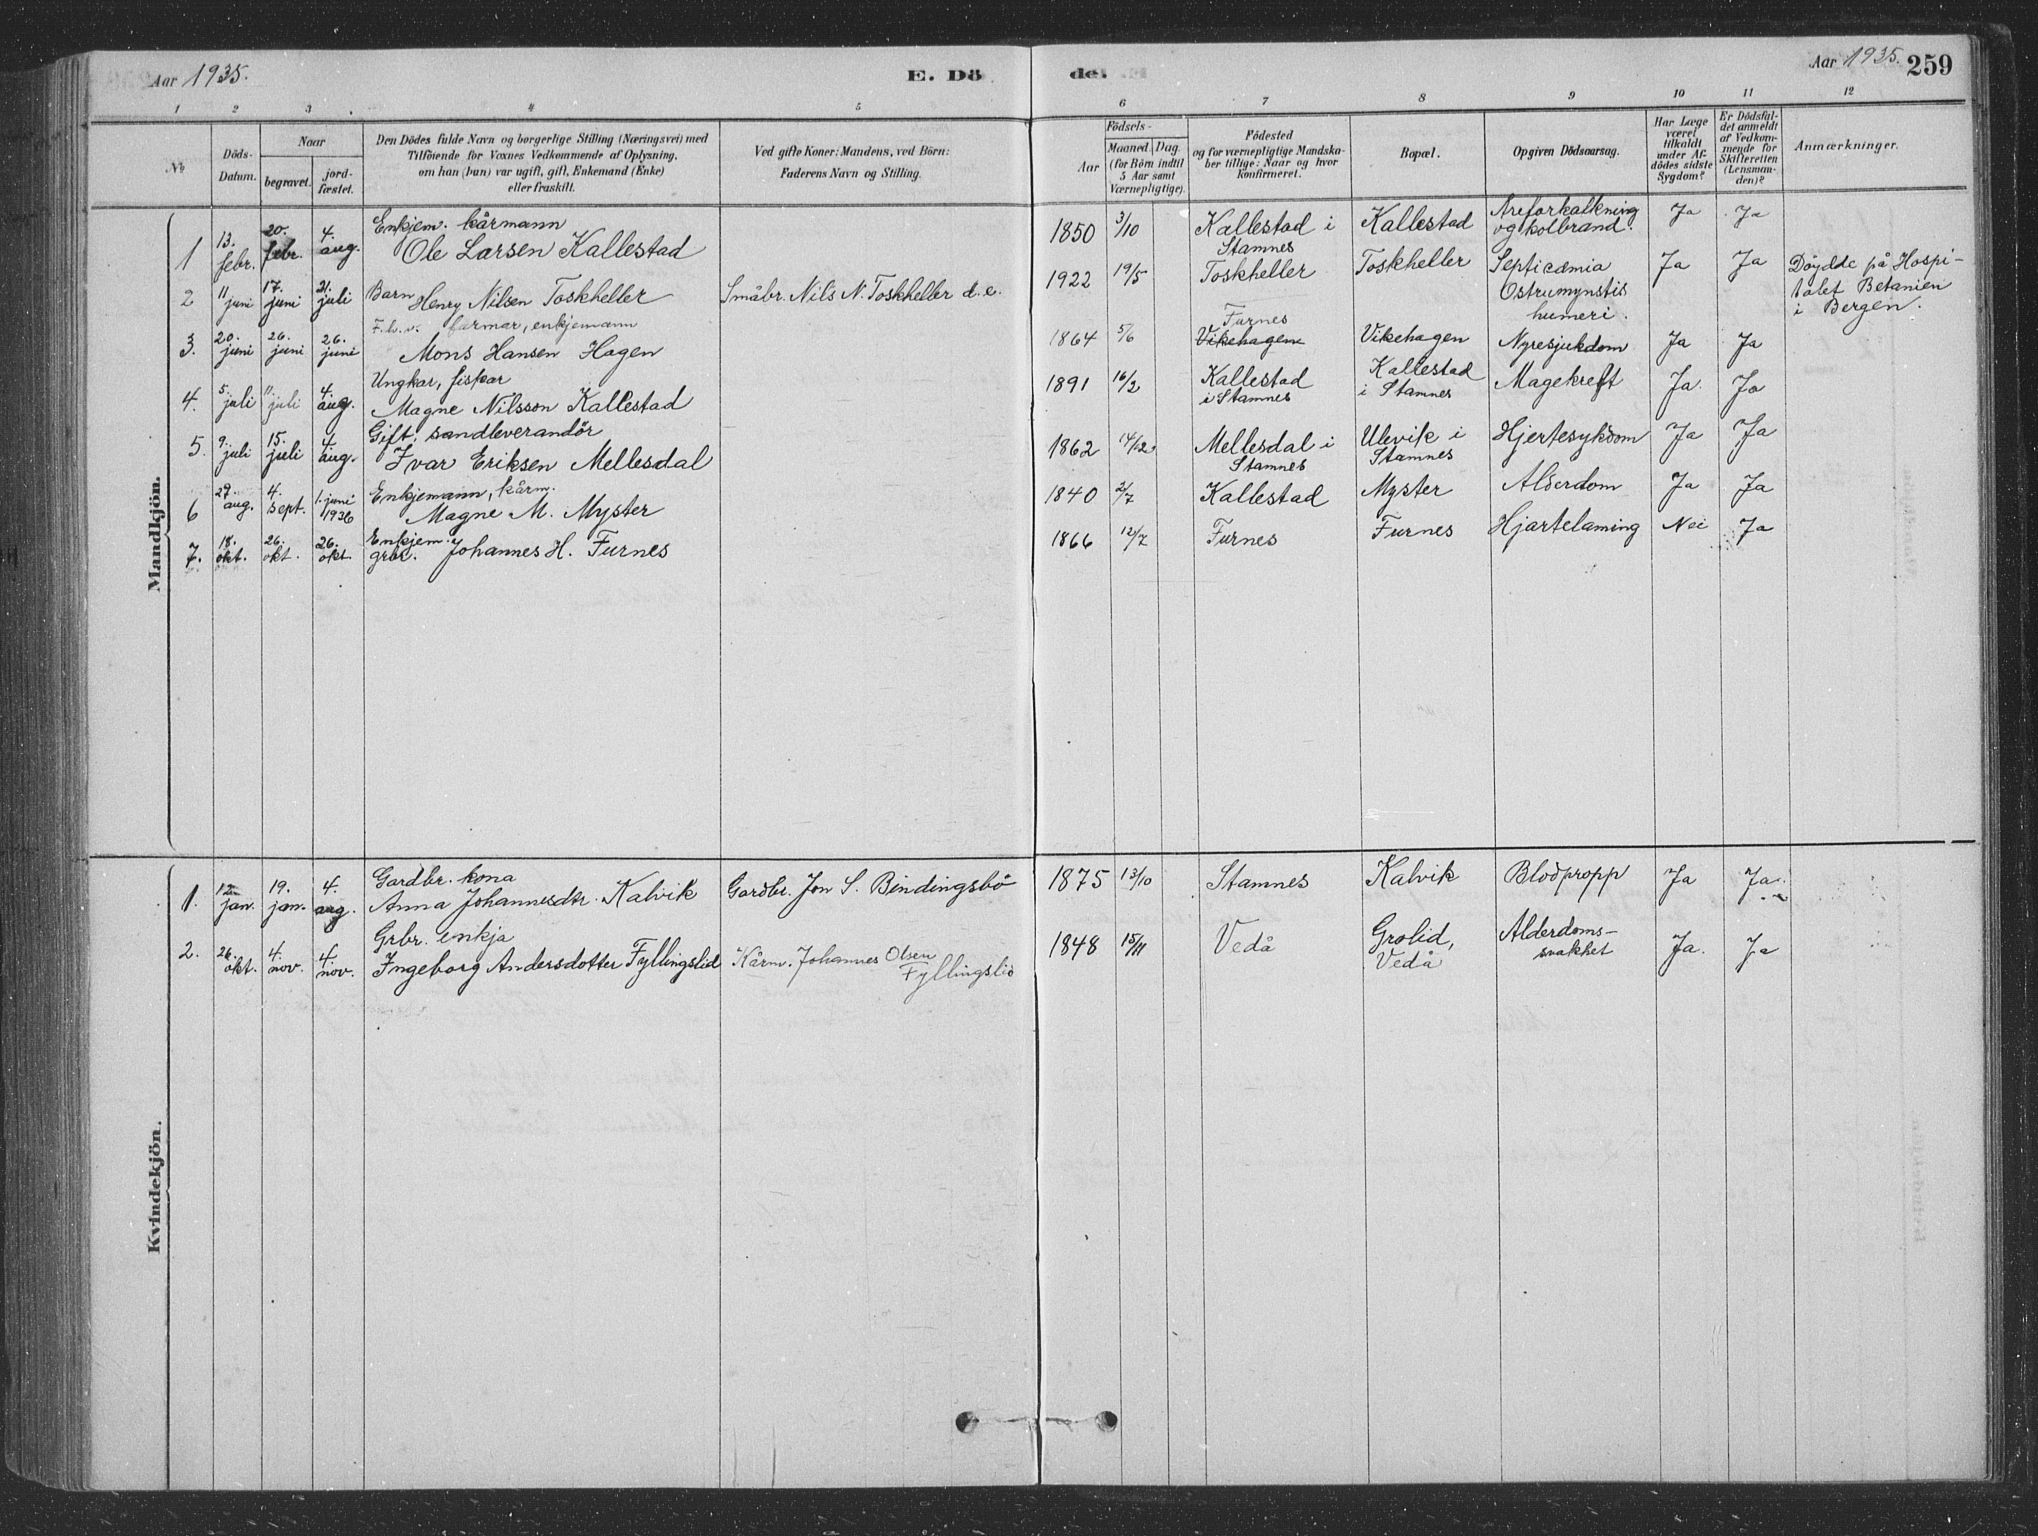 Aar 1935.
E. Dö
de.
Aar 1935.
259
1 2 3 4 5 6 7 8 9 10 11 12
No
Döds-
Datum.
Naar
begravet.
jord-
fæstet.
Den Dödes fulde Navn og borgerlige Stilling (Næringsvei) med
Tilföiende for Voxnes Vedkommende af Oplysning,
om han (hun) var ugift, gift, Enkemand (Enke)
eller fraskilt.
Ved gifte Koner: Mandens, ved Börn:
Faderens Navn og Stilling.
Födsels-
Aar
Maaned. Dag.
(for Börn indtil
5 Aar samt
Værnepligtige).
Födested
og for værnepligtige Mandska-
ber tillige: Naar og hvor
Konfirmeret.
Bopæl.
Opgiven Dödsaarsag.
Har Læge
været
tilkaldt
under Af-
dödes sidste
Sygdom?
Er Dödsfal-
det anmeldt
af Vedkom-
mende for
Skifteretten
(Lensman-
den)?
Anmærkninger.
Mandkjön.
1 13. febr. 20. febr. 4. aug. Enkjem. kårmann
Ole Larsen Kallestad 1850 3/10 Kallestad i Stamnes Kallestad Åreforkalkning og kolbrand. Ja Ja
2 11 juni 17. juni 21. juli Barn Henry Nilsen Toskheller Småbr. Nils N. Toskheller d.e. 1922 19/5 Toskheller Toskheller Septicæmia
Ostrumynstis
humeri. Ja Ja Döydde på Hospi-
talet Betanien
i Bergen.
3. 20. juni 26. juni 26. juni F.h.v. farmar, enkjemann
Mons Hansen Hagen 1864 5/6 Furnes
Vikehagen Vikehagen Nyresjukdom Ja Ja
4. 5. juli 11 juli 4. aug. Ungkar, fiskar
Magne Nilsson Kallestad 1891 16/2 Kallestad
i Stamnes Kallestad
i Stamnes Magekreft Ja. Ja
5. 9. juli 15. juli 4. aug. Gift, sandleverandör
Ivar Eriksen Mellesdal 1862 14/12 Mellesdal i
Stamnes Ulevik i
Stamnes Hjertesykdom Ja Ja
6 27. aug. 4. sept. 1. juni 1936 Enkjemann, kårm.
Magne M. Myster 1840 2/7 Kallestad Myster Alderdom Ja Ja
7. 18. okt. 26. okt. 26. okt. Enkjem.
grbr. Johannes H. Furnes 1866 12/7 Furnes Furnes Hjartelaming Nei Ja
Kvindekjön.
1. 12. jan. 19. jan. 4. aug. Gardbr. kona
Anna Johannesdtr. Kalvik Gardbr. Jon S. Bindingsbö 1875 13/10 Stamnes Kalvik Blodpropp Ja Ja.
2. 26. okt. 4. nov. 4. nov. Grbr. enkja
Ingeborg Andersdotter Fyllingslid Kårm. Johannes Olsen
Fyllingslid 1848 15/11 Vedå Grolid,
Vedå Alderdoms-
svakhet Ja. Ja